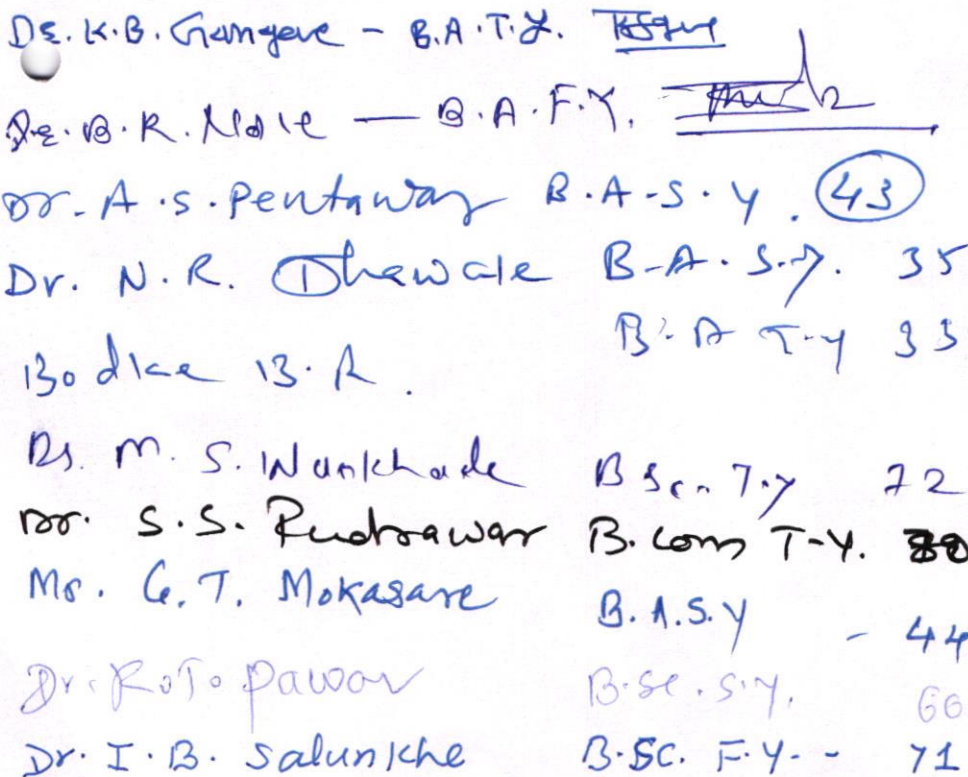 Dr. K.B. Gangave - B.A.T.Y.
Dr. B.R. Nale — B.A.F.Y.
Dr. A.S. Pentawar B.A-S.Y. 43
Dr. N.R. Dhawale B-A. S.Y. 35
B.A T-Y 35
Bodke B.R.
Dr. M. S. Wankhade BSc. T.Y 72
Dr. S.S. Rudrawar B.com T-Y.
Mr. G.T. Mokasare B.A.S.Y - 44
Dr. R.T. Pawar B.Sc. S.Y. 60
Dr. I.B. Salunkhe B.SC. F.Y.- - 71